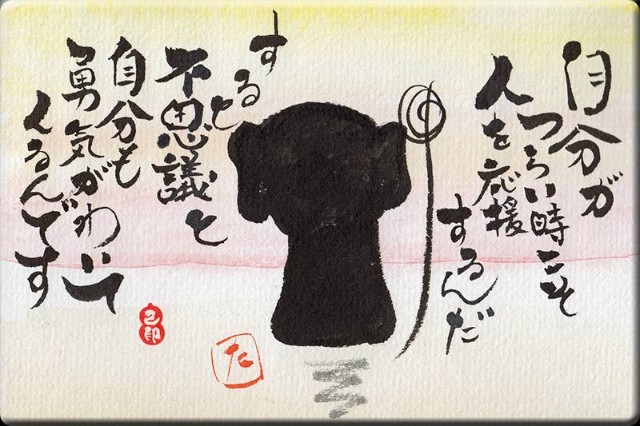 自分が
つらい時こそ
人を応援
するんだ
すると
不思議と
自分も
勇気がわいて
くるんです
た